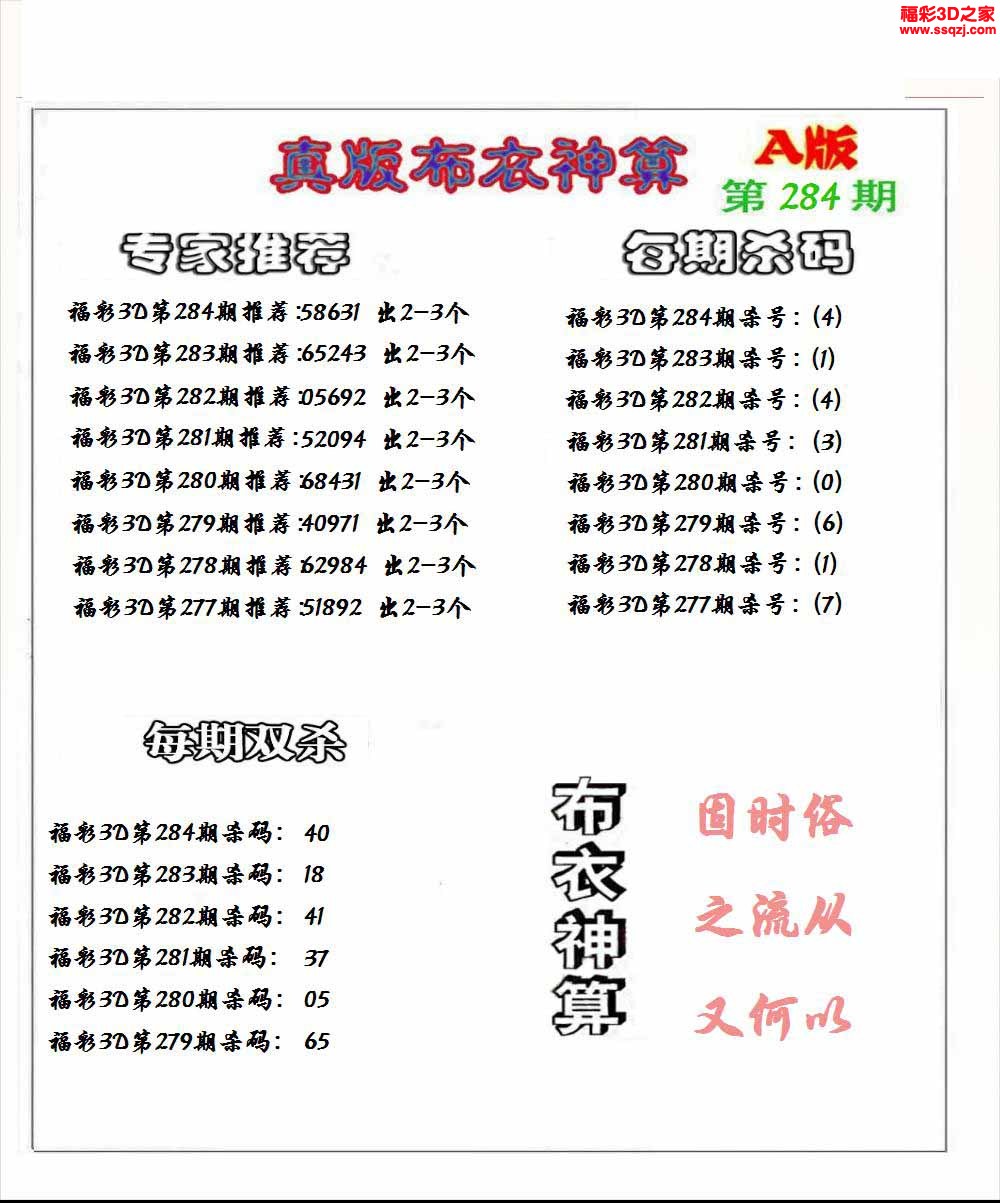 福彩3D之家
www.ssqzj.com
真版布衣神算
A版
第 284 期
专家推荐
福彩3D第284期推荐:58631 出2-3个
福彩3D第283期推荐:65243 出2-3个
福彩3D第282期推荐:05692 出2-3个
福彩3D第281期推荐:52094 出2-3个
福彩3D第280期推荐:68431 出2-3个
福彩3D第279期推荐:40971 出2-3个
福彩3D第278期推荐:62984 出2-3个
福彩3D第277期推荐:51892 出2-3个
每期杀码
福彩3D第284期杀号：(4)
福彩3D第283期杀号：(1)
福彩3D第282期杀号：(4)
福彩3D第281期杀号：(3)
福彩3D第280期杀号：(0)
福彩3D第279期杀号：(6)
福彩3D第278期杀号：(1)
福彩3D第277期杀号：(7)
每期双杀
福彩3D第284期杀码： 40
福彩3D第283期杀码： 18
福彩3D第282期杀码： 41
福彩3D第281期杀码： 37
福彩3D第280期杀码： 05
福彩3D第279期杀码： 65
布衣神算
固时俗
之流从
又何以